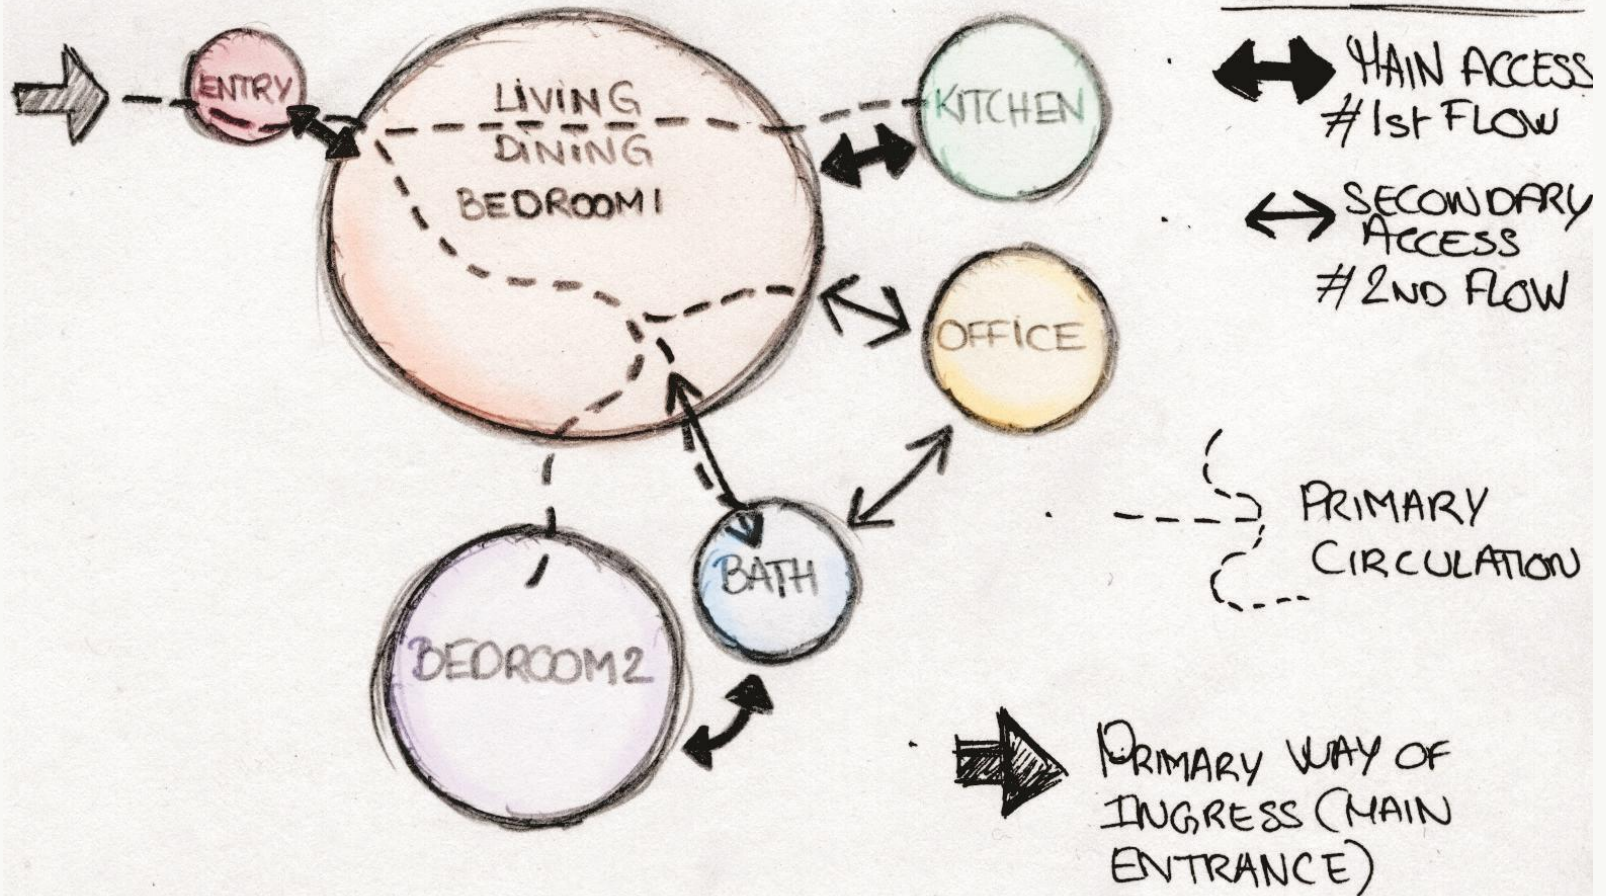 ENTRY
LIVING
DINING
BEDROOM1
KITCHEN
OFFICE
BATH
BEDROOM2
MAIN ACCESS
# 1st FLOW
SECONDARY
ACCESS
# 2ND FLOW
PRIMARY
CIRCULATION
PRIMARY WAY OF
INGRESS (MAIN
ENTRANCE)